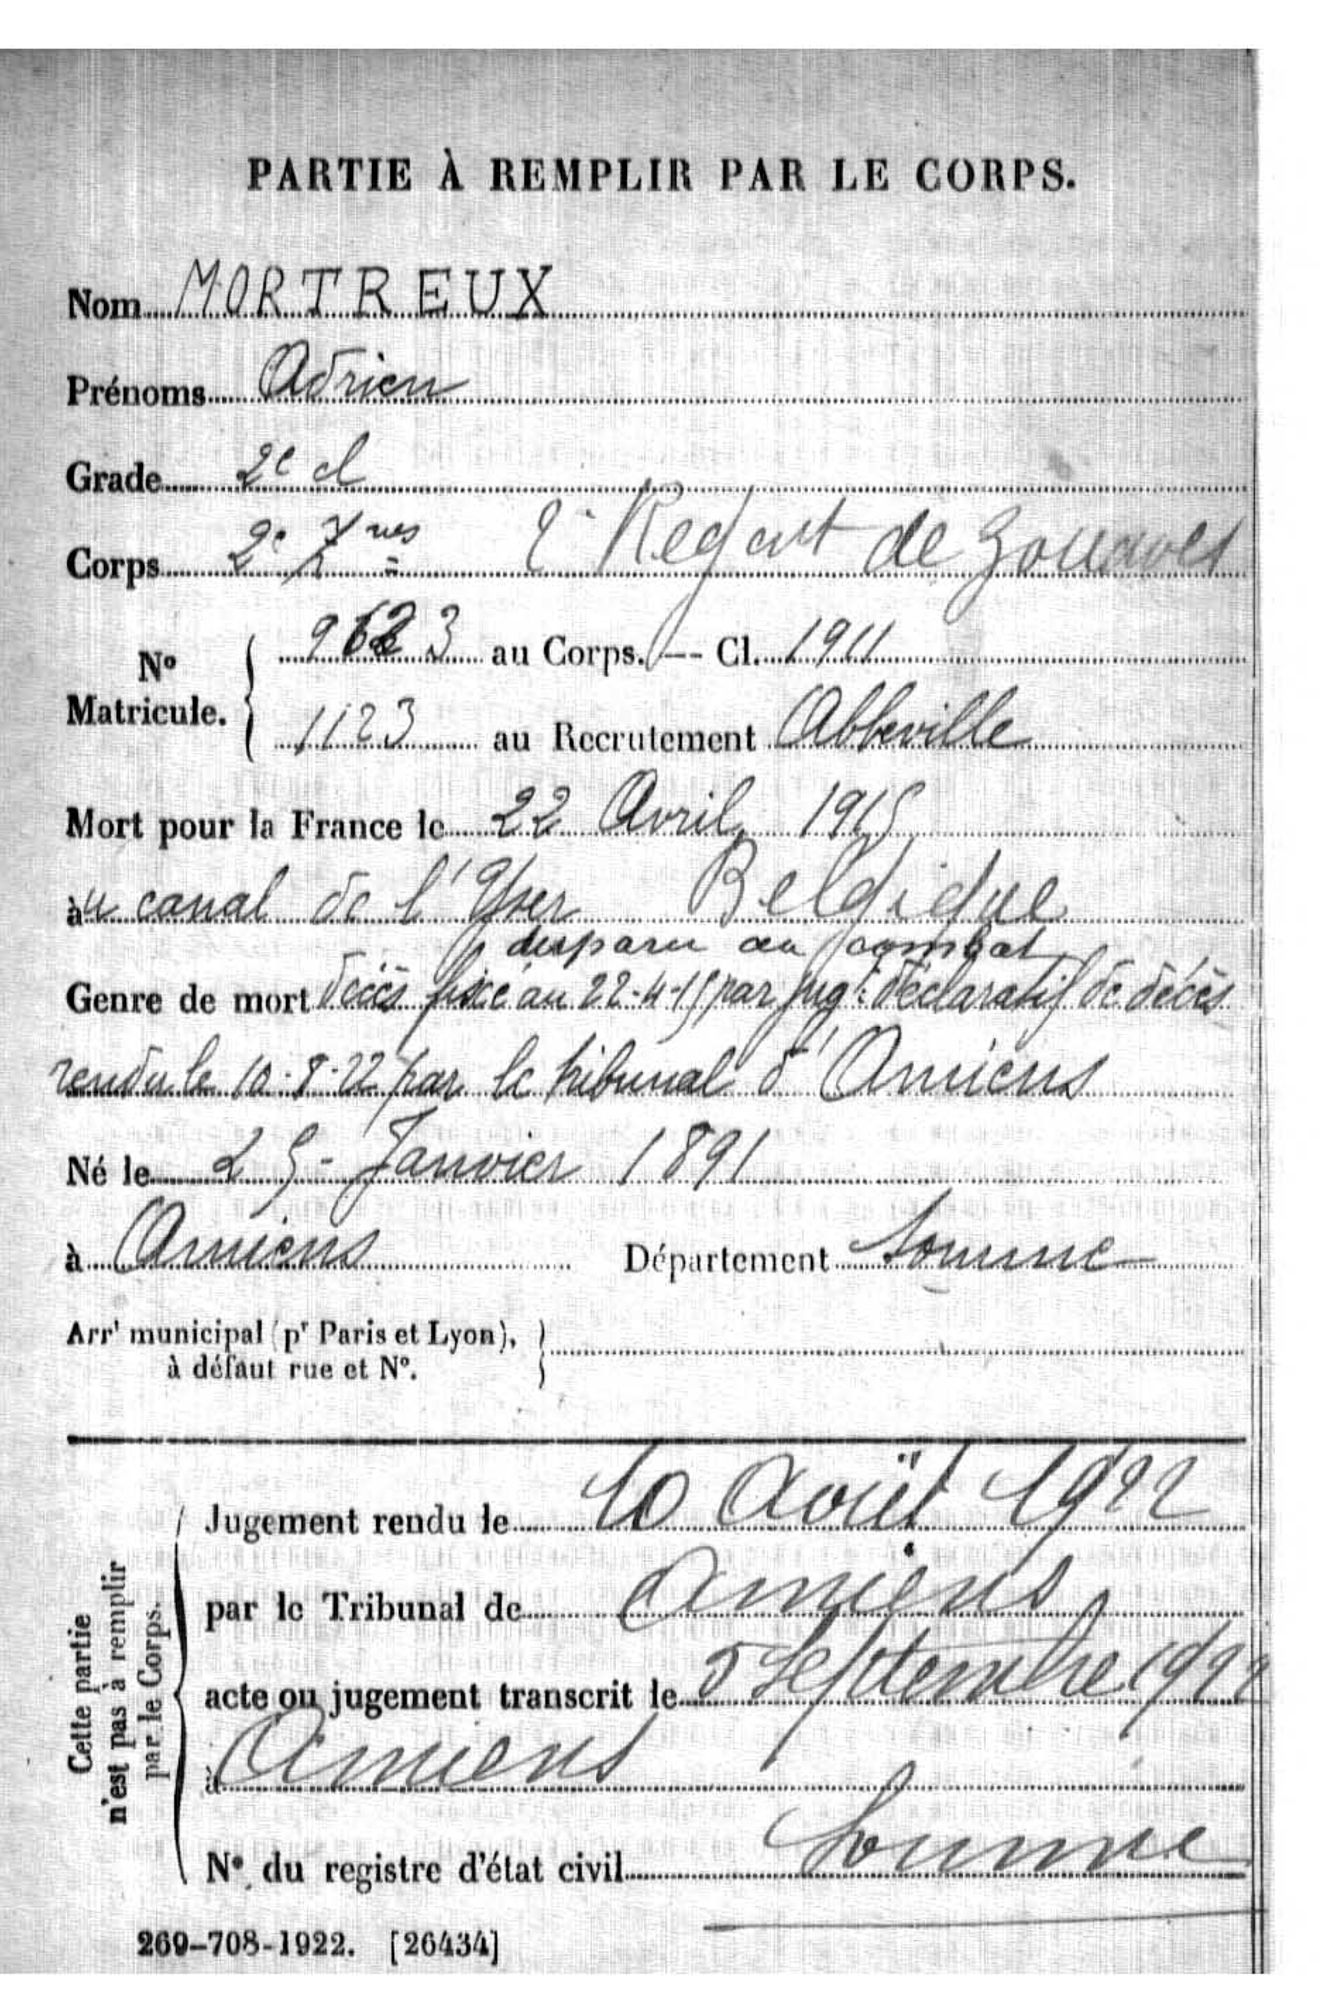 PARTIE À REMPLIR PAR LE CORPS.
Nom MORTREUX
Prénoms Adrien
Grade 2e cl
Corps 2e Zves 2e Regart de Zouaves
No Matricule. 9623 au Corps. — Cl. 1911
1123 au Recrutement Abbeville
Mort pour la France le 22 Avril 1915
au canal de l'Yser Belgique
disparu au combat
Genre de mort décès fixé au 22-4-15 par jugt déclaratif de décès
rendu le 10-8-22 par le tribunal d'Amiens
Né le 25 - Janvier 1891
à Amiens Département Somme
Arrt municipal (pr Paris et Lyon),
à défaut rue et No.
Cette partie
n'est pas à remplir
par le Corps.
Jugement rendu le 10 Août 1922
par le Tribunal de Amiens
acte ou jugement transcrit le 5 Septembre 1922
à Amiens
No du registre d'état civil Somme
269-708-1922. [26434]